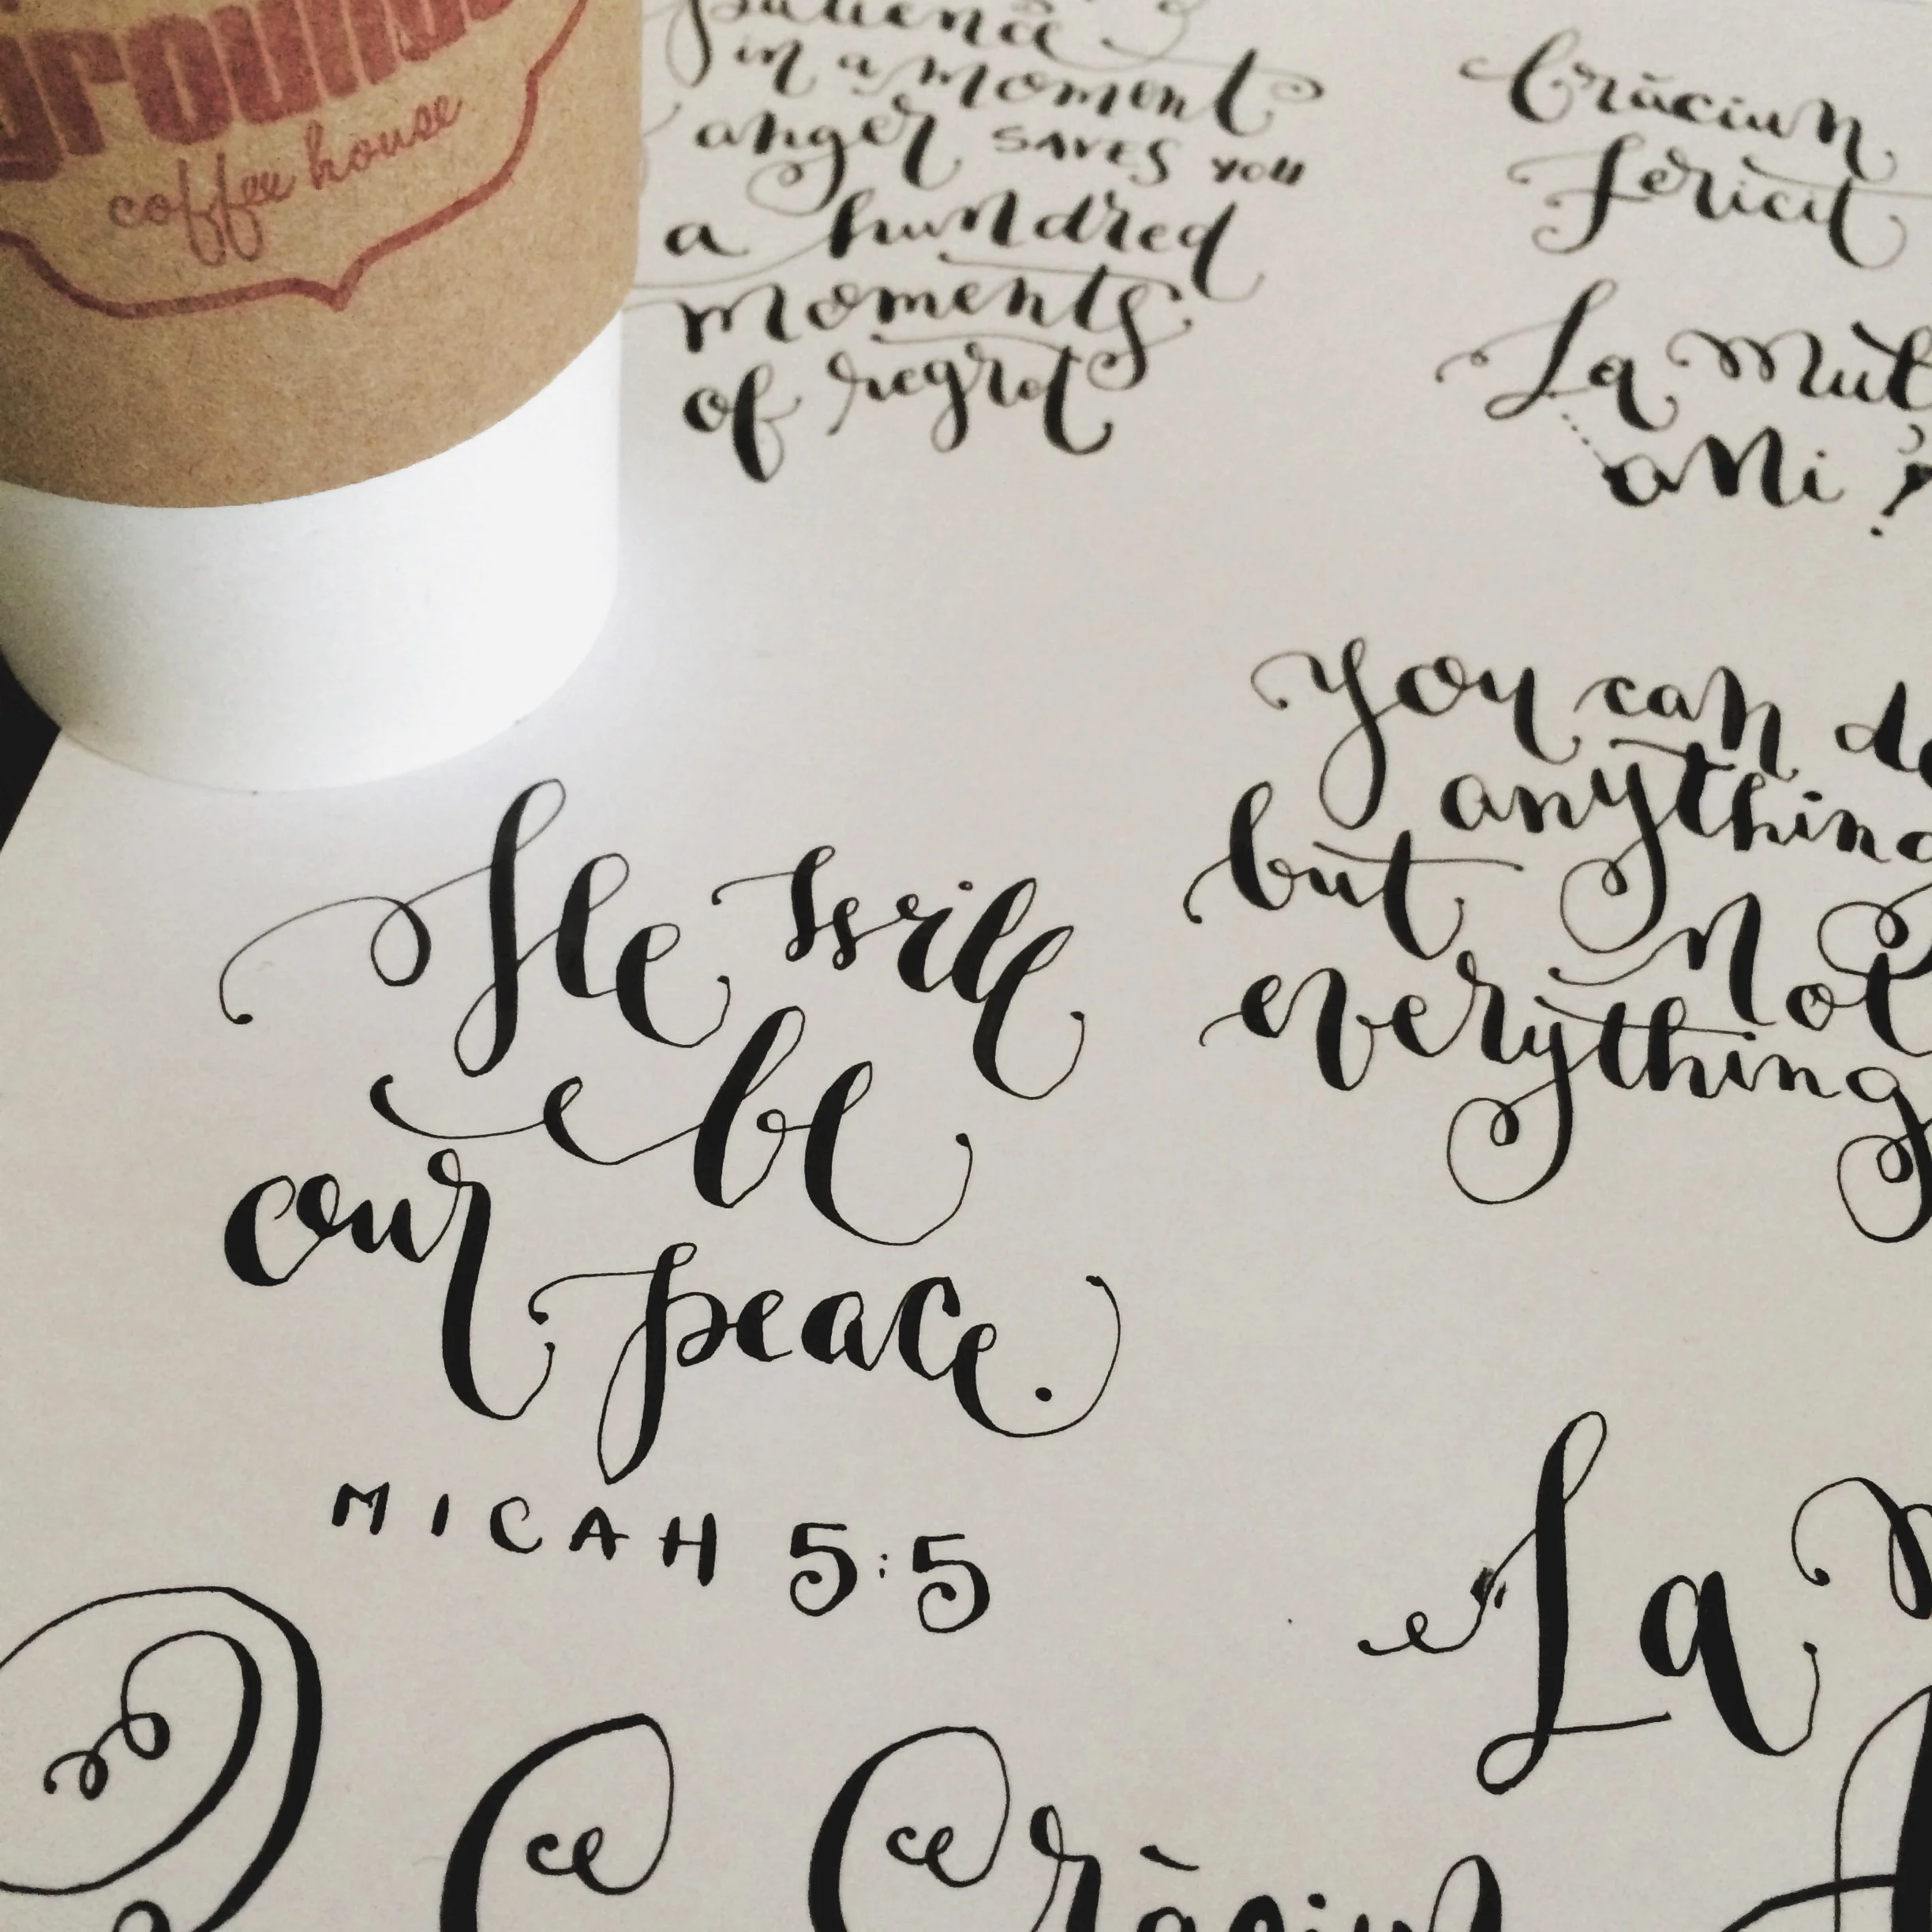 ground
coffee house
patience
in a moment
anger SAVES YOU
a hundred
moments
of regret
Crăciun
fericit
La Mul
aNi !
you can do
anything
but not
everything
He will
be
our
peace.
MICAH 5:5
La
Crăciun